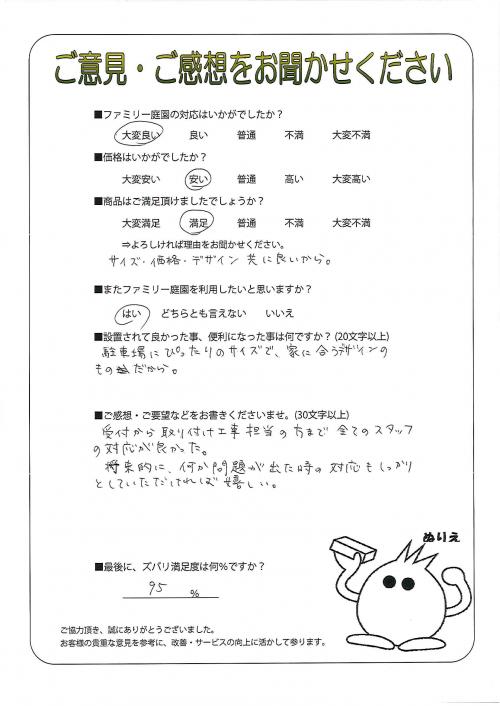 ご意見・ご感想をお聞かせください
■ファミリー庭園の対応はいかがでしたか？
大変良い 良い 普通 不満 大変不満
■価格はいかがでしたか？
大変安い 安い 普通 高い 大変高い
■商品はご満足頂けましたでしょうか？
大変満足 満足 普通 不満 大変不満
⇒よろしければ理由をお聞かせください。
サイズ・価格・デザイン 共に良いから。
■またファミリー庭園を利用したいと思いますか？
はい どちらとも言えない いいえ
■設置されて良かった事、便利になった事は何ですか？(20文字以上)
駐車場にぴったりのサイズで、家に合うデザインの
ものだから。
■ご感想・ご要望などをお書きくださいませ。(30文字以上)
受付から取り付け工事担当の方まで全てのスタッフ
の対応が良かった。
将来的に、何か問題が出た時の対応もしっかり
としていただければ嬉しい。
ぬりえ
■最後に、ズバリ満足度は何%ですか？
95 %
ご協力頂き、誠にありがとうございました。
お客様の貴重な意見を参考に、改善・サービスの向上に活かして参ります。